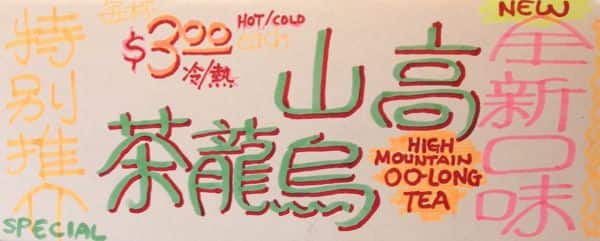 NEW
全新口味
高山
烏龍茶
HIGH
MOUNTAIN
OO-LONG
TEA
每杯
$3.00
HOT/COLD
each
冷/熱
特別推介
SPECIAL